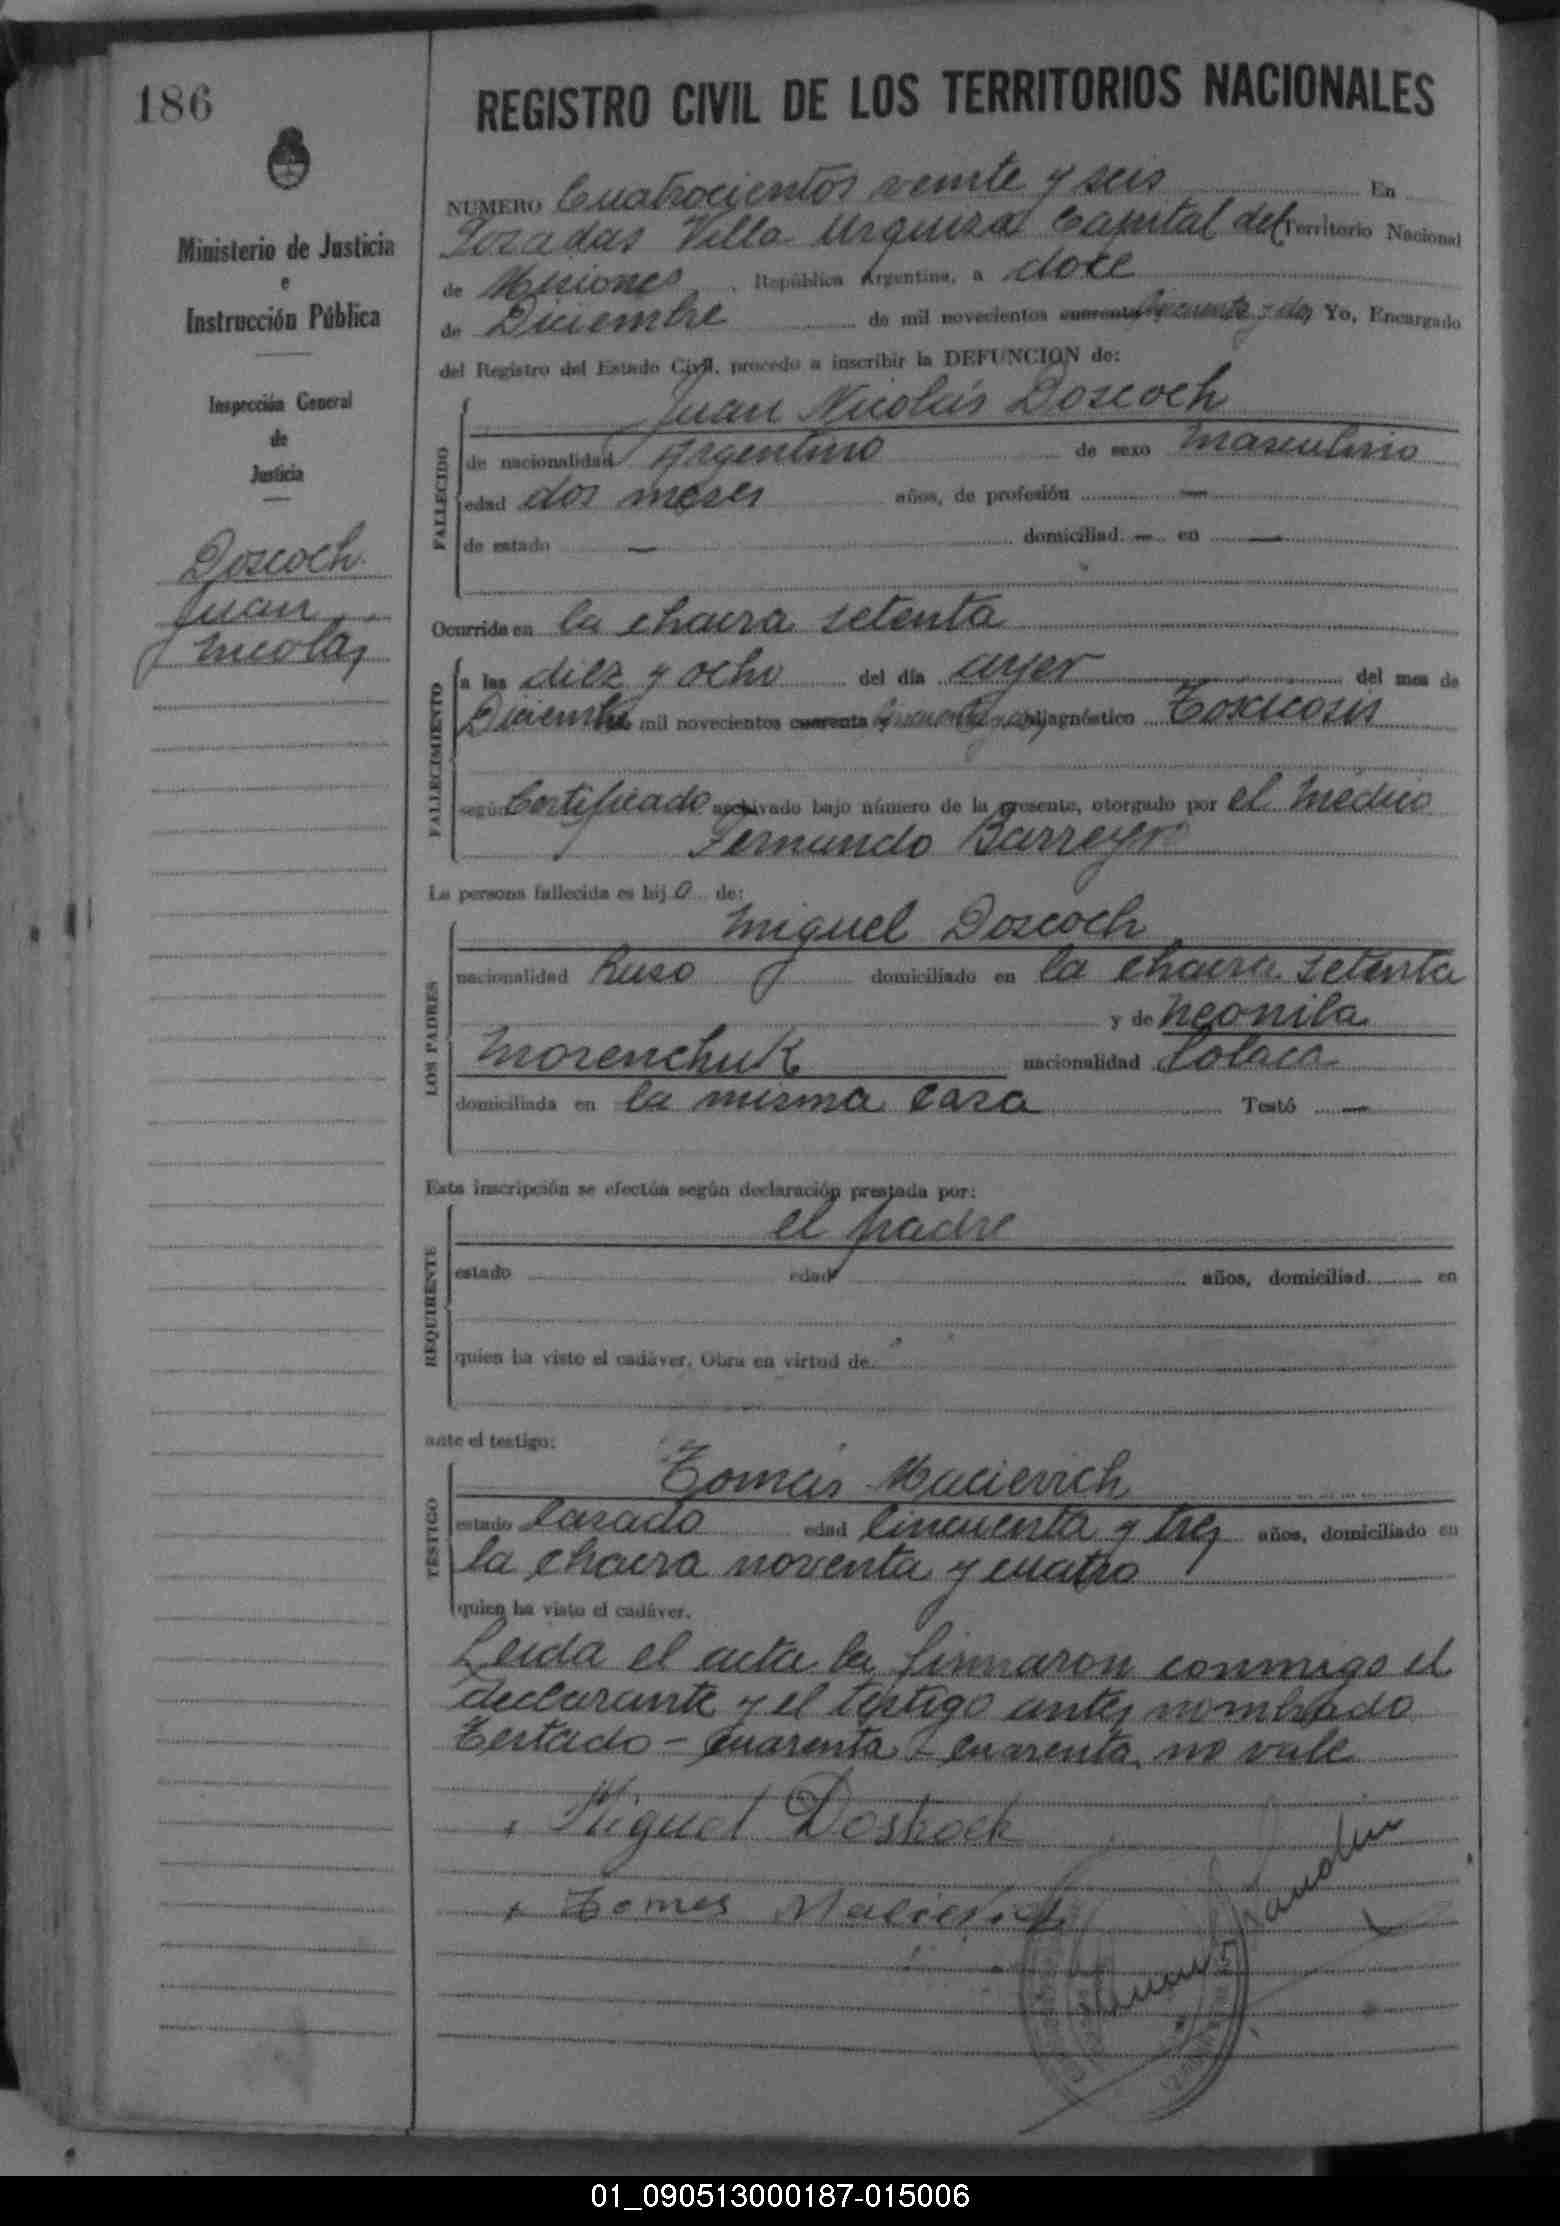 186
REGISTRO CIVIL DE LOS TERRITORIOS NACIONALES
Ministerio de Justicia
e
Instrucción Pública
Inspección General
de
Justicia
Doscoch
Juan
Nicolás
NUMERO Cuatrocientos veinte y seis En
Posadas Villa Urquiza Capital del Territorio Nacional
de Misiones, República Argentina, a doce
de Diciembre de mil novecientos cuarenta cincuenta y dos Yo, Encargado
del Registro del Estado Civil, procedo a inscribir la DEFUNCION de:
FALLECIDO
Juan Nicolás Doscoch
de nacionalidad Argentino de sexo Masculino
edad dos meses años, de profesión —
de estado — domiciliad — en —
Ocurrida en la chacra setenta
FALLECIMIENTO
a las diez y ocho del día ayer del mes de
Diciembre de mil novecientos cuarenta cincuenta y dos diagnóstico Toxicosis
según Certificado archivado bajo número de la presente, otorgado por el Médico
Fernando Barreyro
La persona fallecida es hijo de:
LOS PADRES
Miguel Doscoch
nacionalidad Ruso domiciliado en la chacra setenta
y de Neonila
Morenchuk nacionalidad Polaca
domiciliada en la misma casa Testó —
Esta inscripción se efectúa según declaración prestada por:
REQUIRENTE
el padre
estado edad años, domiciliad en
quien ha visto el cadáver. Obra en virtud de
ante el testigo:
TESTIGO
Tomás Macievich
estado Casado edad Cincuenta y tres años, domiciliado en
la chacra noventa y cuatro
quien ha visto el cadáver.
Leida el acta la firmaron conmigo el
declarante y el testigo antes nombrado
Testado - cuarenta - cuarenta no vale
+ Miguel Doskoch
+ Tomas Macievich
01_090513000187-015006